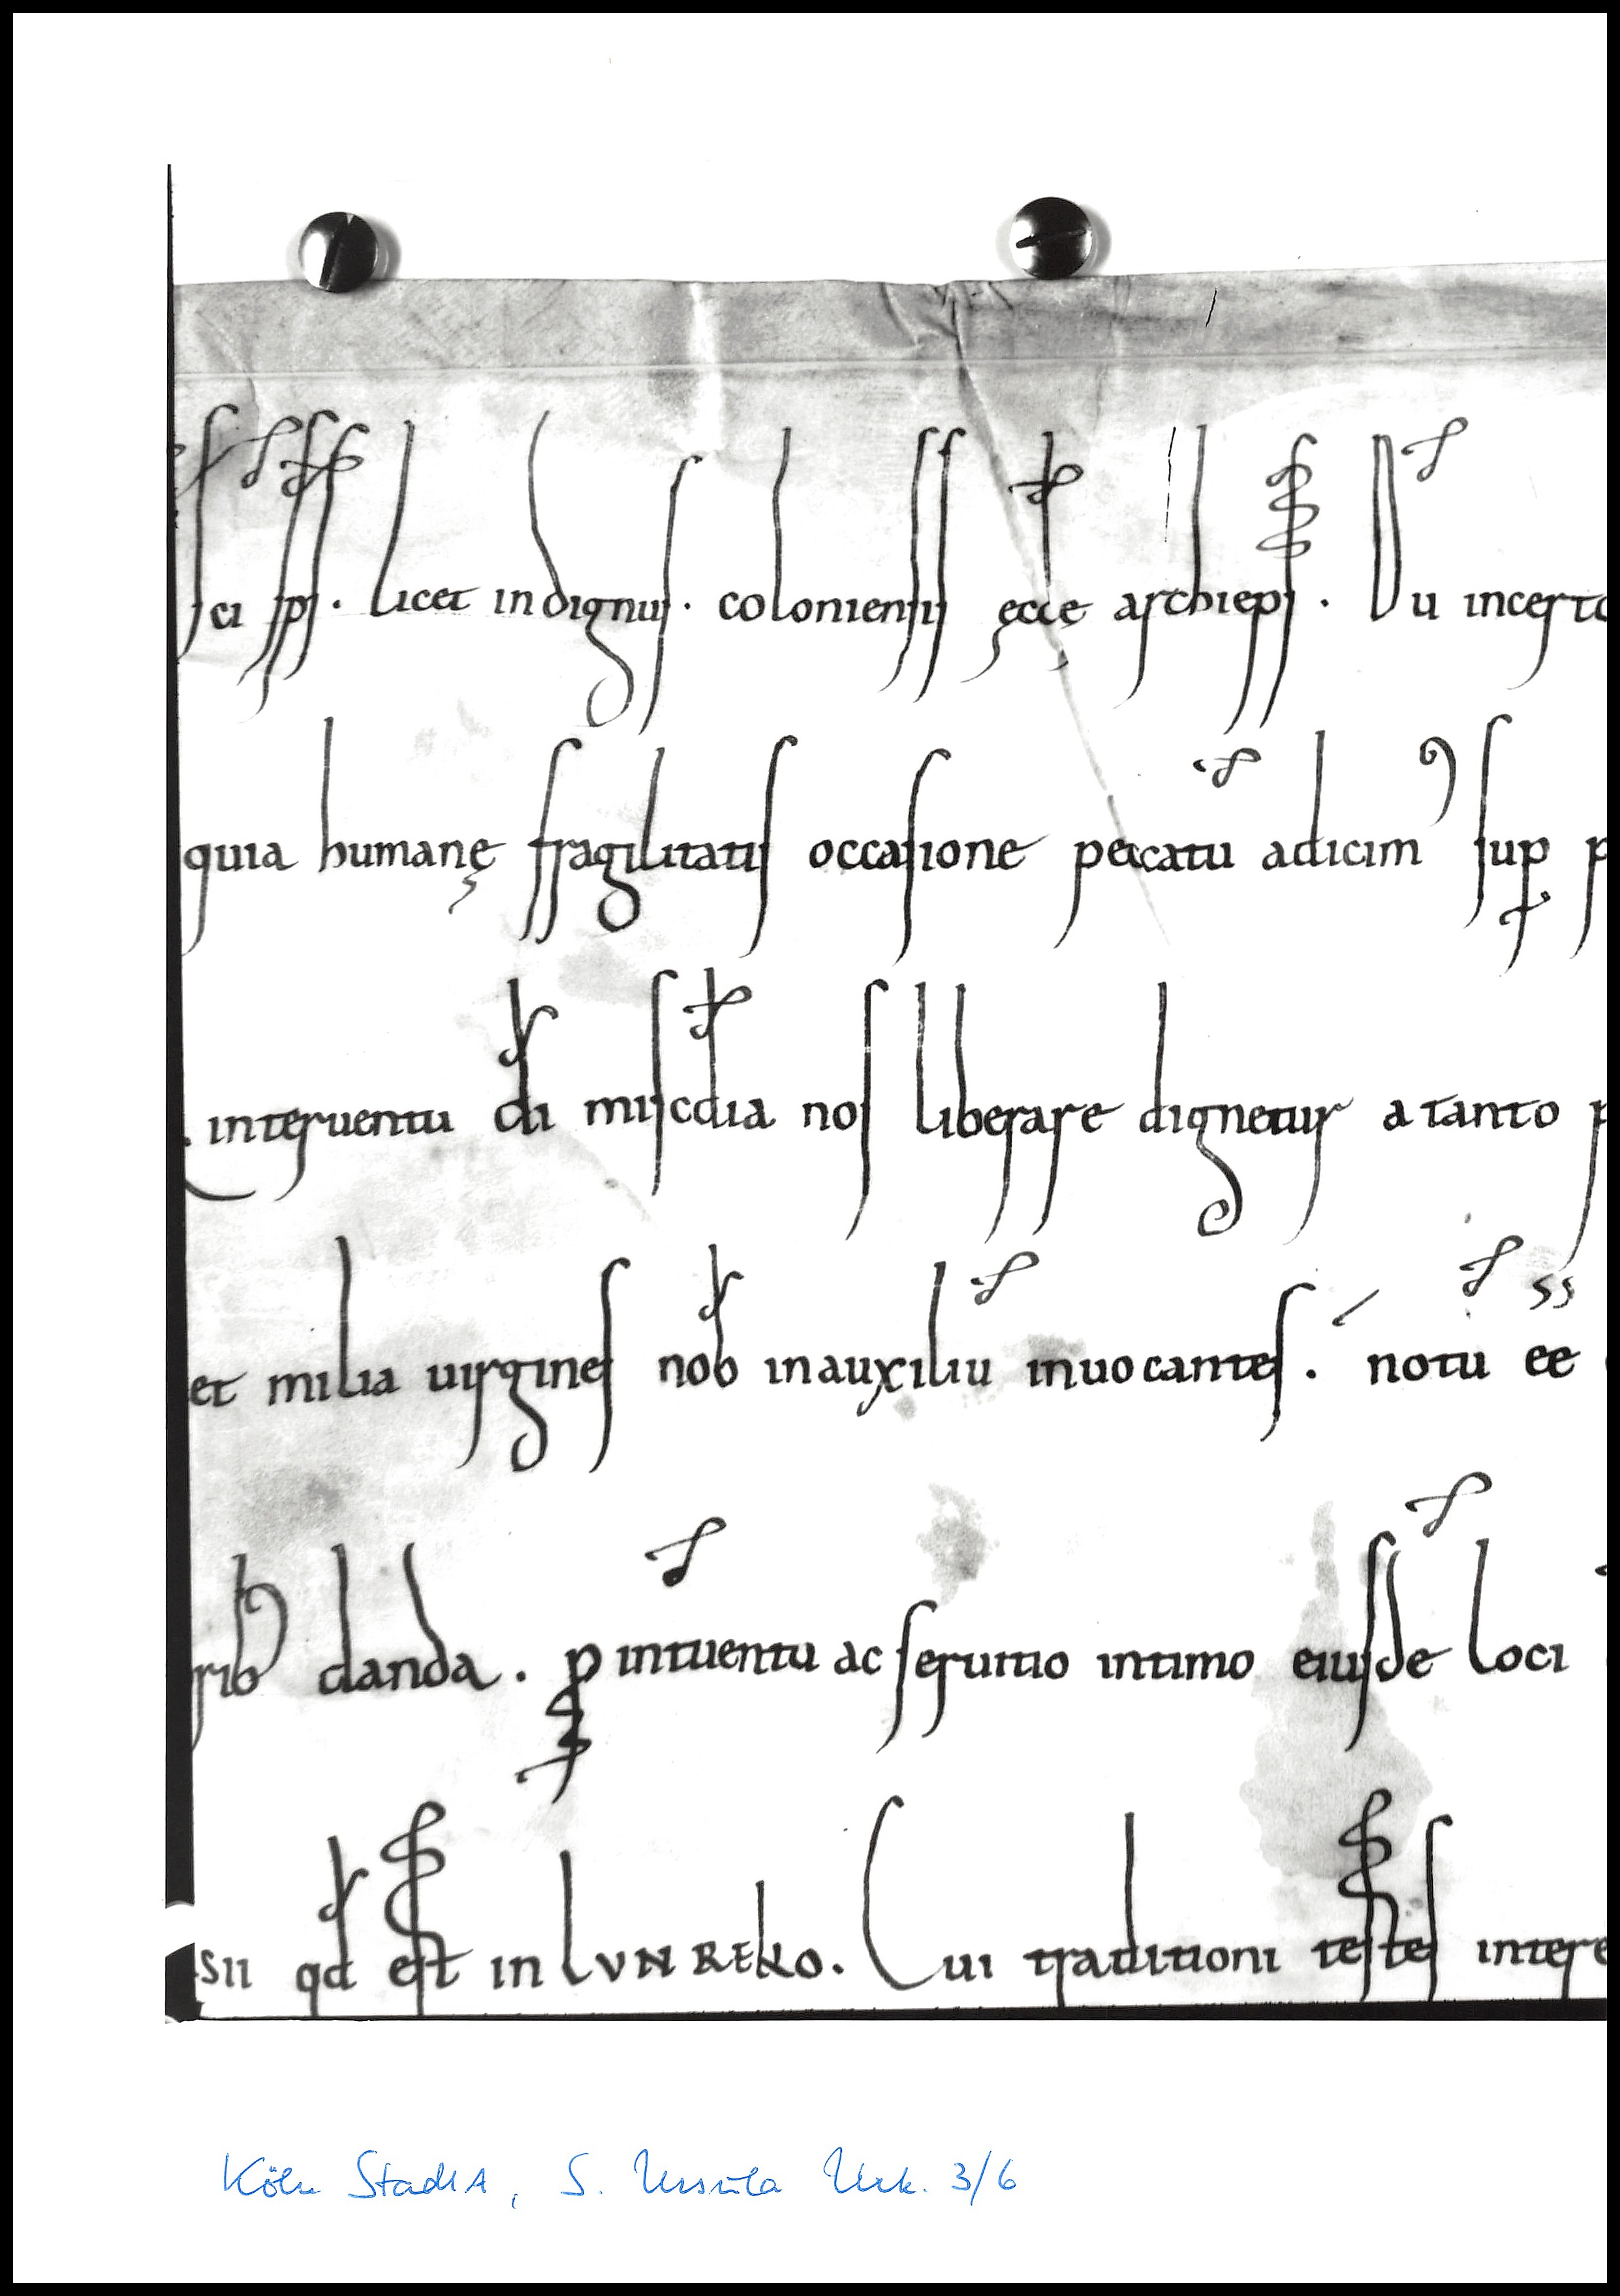 sci sps . licet indignus . coloniensis ęcclę archieps . Du incerto
quia humanę fragilitatis occasione peccatu adicim' sup p
interuentu di miscdia nos liberare dignetur a tanto p
et milia uirgines nob in auxiliu inuocantes . notu ee
rib' danda . p intuentu ac seruitio intimo eiusde loci
sii qd est in LVNREKO . Cui traditioni testes intere
Köln StadtA, S. Ursula Urk. 3/6